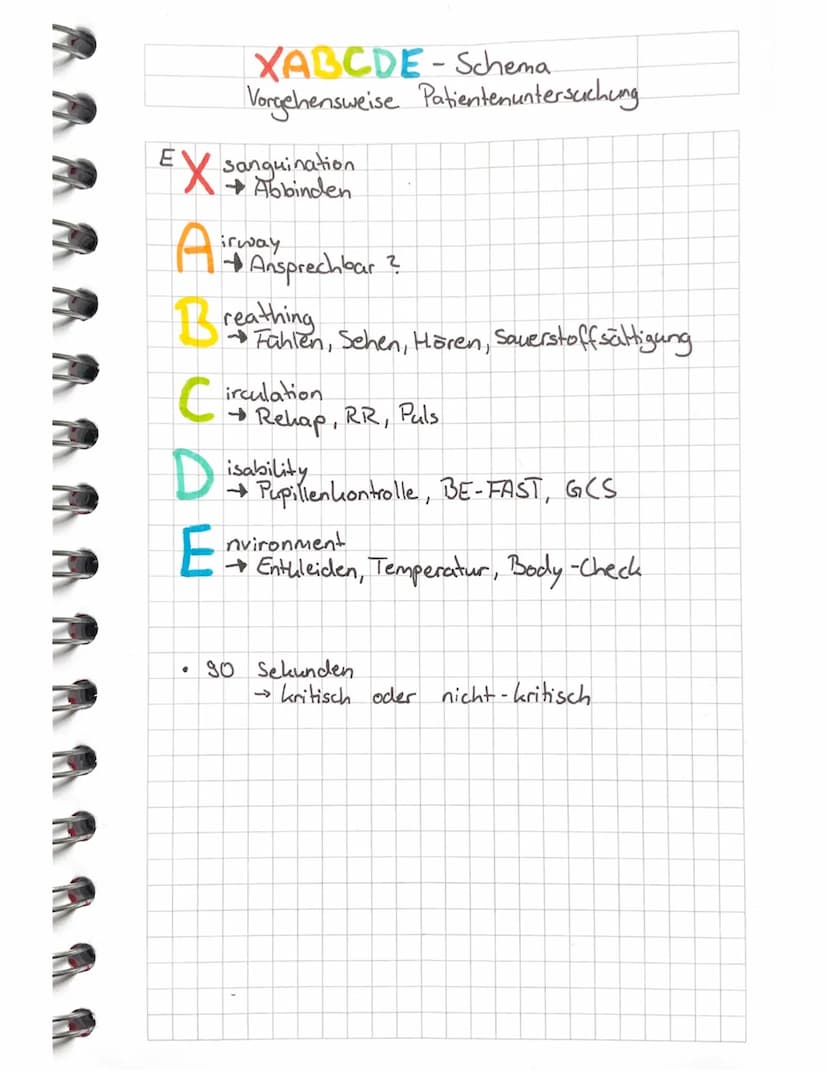 XABCDE - Schema
Vorgehensweise Patientenuntersuchung
EXsanguination
→ Abbinden
Airway
→ Ansprechbar ?
Breathing
→ Fühlen, Sehen, Hören, Sauerstoffsättigung
Circulation
→ Rekap, RR, Puls
Disability
→ Pupillenkontrolle, BE-FAST, GCS
Environment
→ Entkleiden, Temperatur, Body-Check
• 90 Sekunden
→ kritisch oder nicht-kritisch